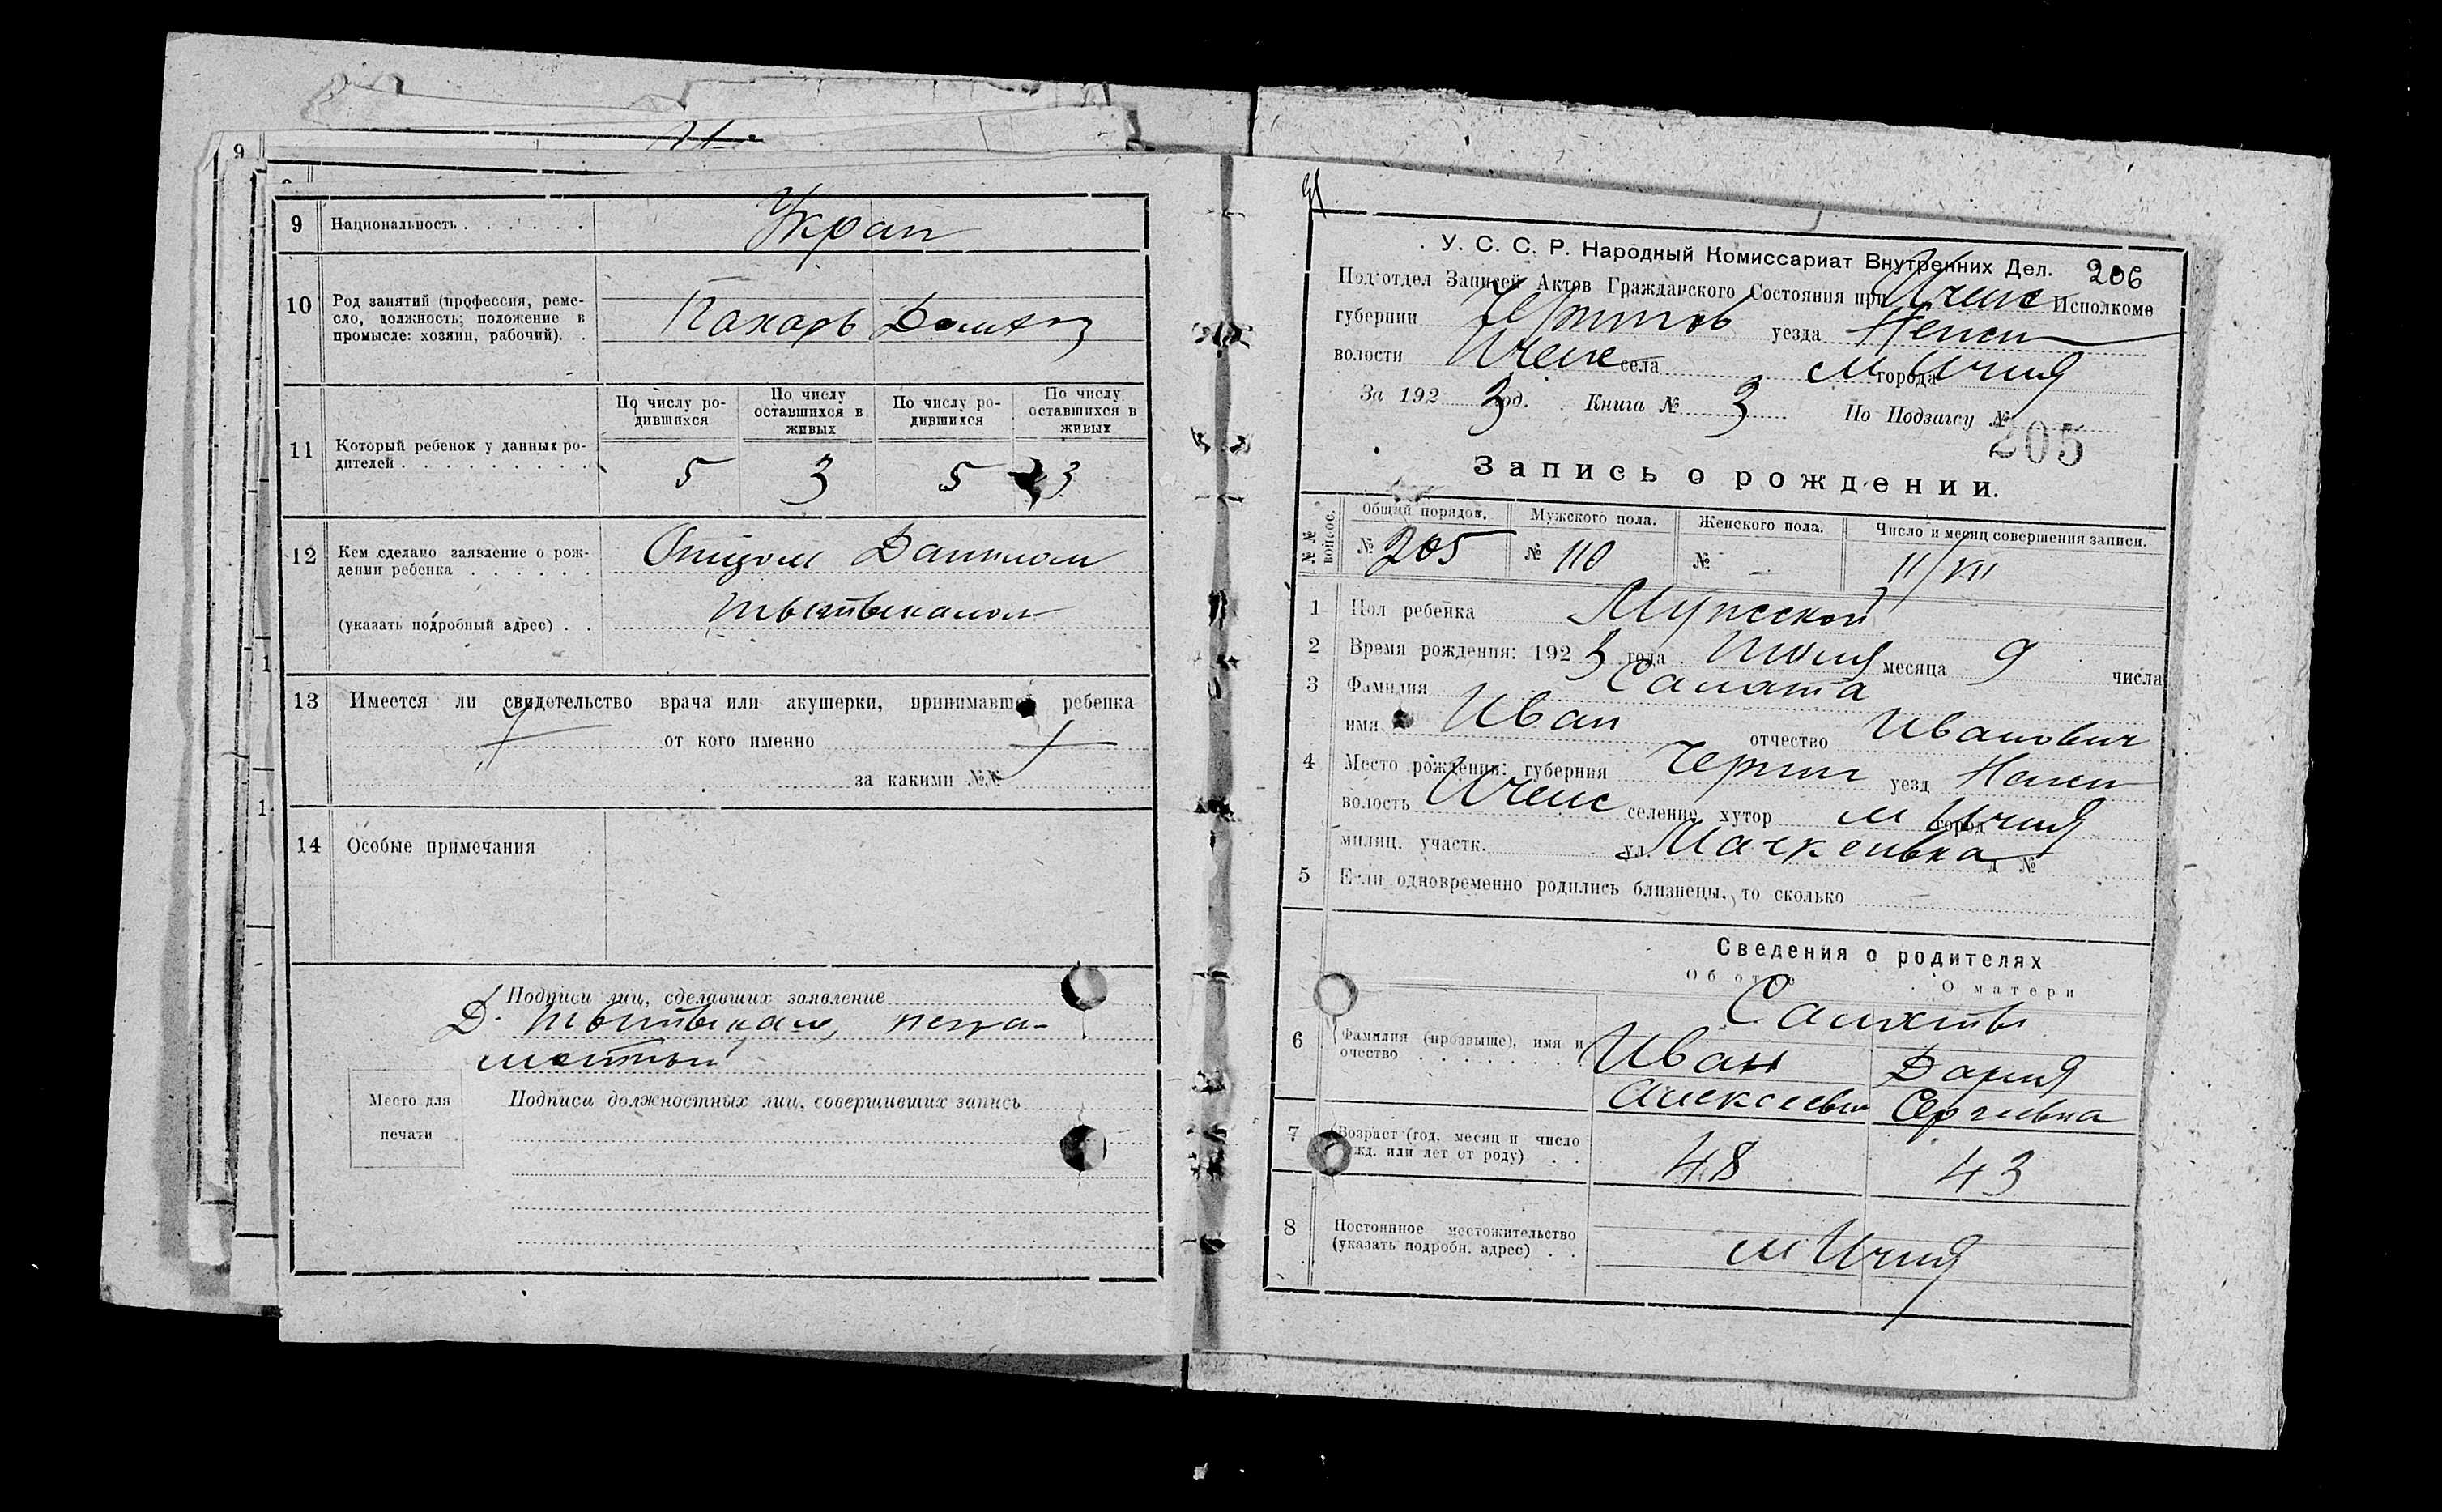 9 Национальность . . . . . . Украп
10 Род занятий (профессия, реме-
сло, должность; положение в
промысле: хозяин, рабочий). .
Пахарь Домхоз
11 Который ребенок у данных ро-
дителей . . . . . . . . .
По числу ро-
дившихся
По числу
оставшихся в
живых
По числу ро-
дившихся
По числу
оставшихся в
живых
5 3 5 3
12 Кем сделано заявление о рож-
дении ребенка . . . . . .
Отцом Даниилом
(указать подробный адрес) . .
13 Имеется ли свидетельство врача или акушерки, принимавшей ребенка
от кого именно
за какими №№
14 Особые примечания
Подписи лиц, сделавших заявление
Д. негра-
мотный
Место для
печати
Подписи должностных лиц, совершивших запись
У. С. С. Р. Народный Комиссариат Внутренних Дел. 206
Под'отдел Записей Актов Гражданского Состояния при Иченс Исполкоме
губернии Чернигов уезда Нежин
волости Иченс села м города Ичня
За 192 3 год. Книга № 3 По Подзагсу №
205
Запись о рождении.
№№ вопрос.
Общий порядов. Мужского пола. Женского пола. Число и месяц совершения записи.
№ 205 № 110 № - 11/VII
1 Пол ребенка Мужской
2 Время рождения: 192 3 года Июля месяца 9 числа
3 Фамилия Самота
имя Иван отчество Иванович
4 Место рождения: губерния Черниг уезд Нежин
волость Иченс селение хутор м город Ичня
милиц. участк. ул. д №
5 Если одновременно родились близнецы, то сколько
Сведения о родителях
Об отце О матери
6 Фамилия (прозвыще), имя и
очество . . . . . . .
Иван Дария
Алексеевич Сергеевна
7 Возраст (год, месяц и число
рожд. или лет от роду) . .
48 43
8 Постоянное местожительство
(указать подробн. адрес) . .
м Ичня